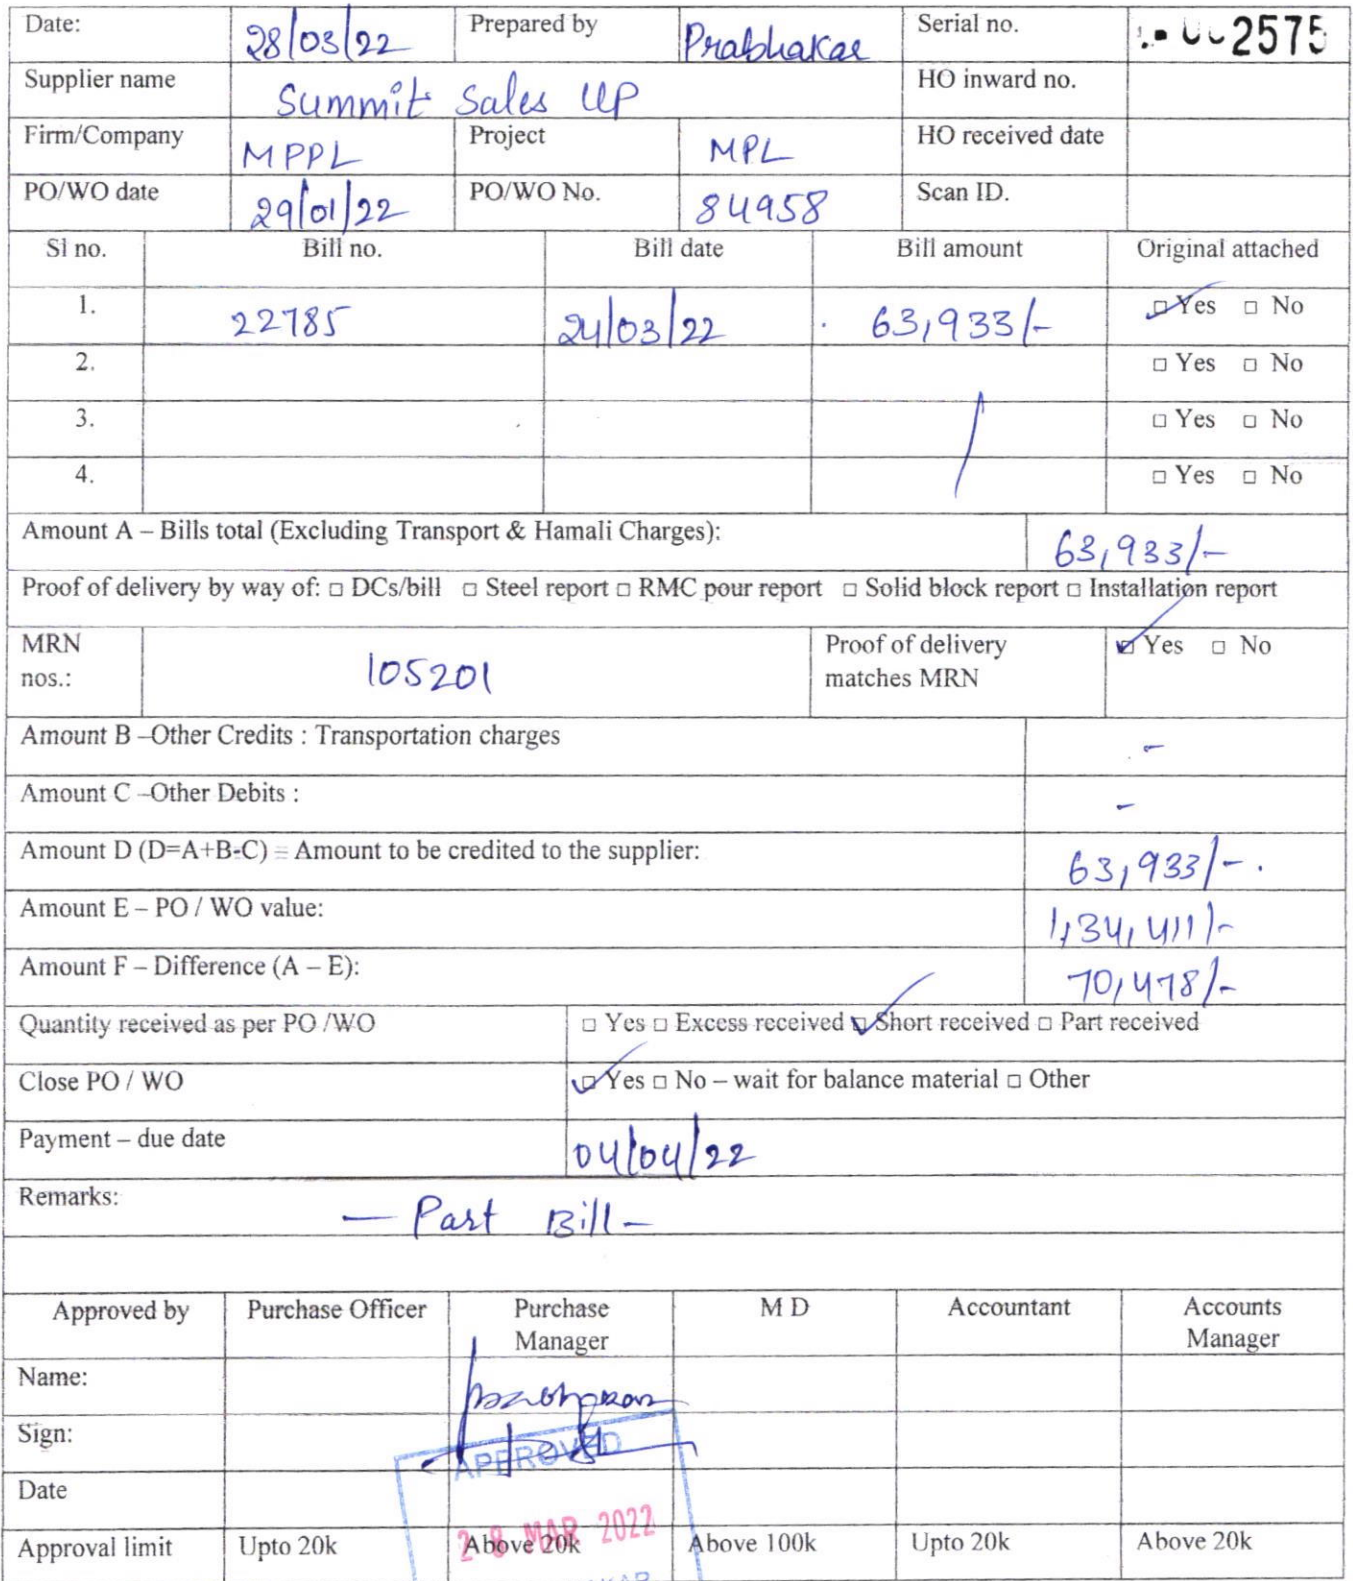 Date: 28/03/22 Prepared by Prabhakar Serial no. 2575
Supplier name Summit Sales LLP HO inward no.
Firm/Company MPPL Project MPL HO received date
PO/WO date 29/01/22 PO/WO No. 84958 Scan ID.
Sl no. Bill no. Bill date Bill amount Original attached
1. 22785 24/03/22 63,933/- ☑ Yes □ No
2. □ Yes □ No
3. □ Yes □ No
4. □ Yes □ No
Amount A – Bills total (Excluding Transport & Hamali Charges): 63,933/-
Proof of delivery by way of: □ DCs/bill □ Steel report □ RMC pour report □ Solid block report □ Installation report
MRN nos.: 105201 Proof of delivery matches MRN ☑ Yes □ No
Amount B –Other Credits : Transportation charges -
Amount C –Other Debits : -
Amount D (D=A+B-C) = Amount to be credited to the supplier: 63,933/-.
Amount E – PO / WO value: 1,34,411/-
Amount F – Difference (A – E): 70,478/-
Quantity received as per PO /WO □ Yes □ Excess received ☑ Short received □ Part received
Close PO / WO ☑ Yes □ No – wait for balance material □ Other
Payment – due date 04/04/22
Remarks: — Part Bill -
Approved by Purchase Officer Purchase Manager M D Accountant Accounts Manager
Name:
Sign:
APPROVED
Date
28 MAR 2022
Approval limit Upto 20k Above 20k Above 100k Upto 20k Above 20k